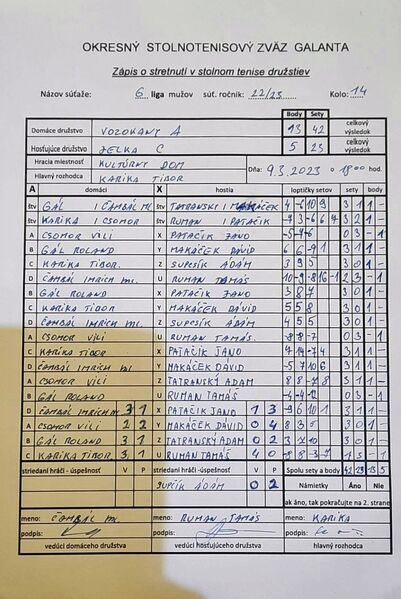 OKRESNÝ STOLNOTENISOVÝ ZVÄZ GALANTA
Zápis o stretnutí v stolnom tenise družstiev
Názov súťaže: 6 liga mužov súť. ročník: 22/23 Kolo: 14
Body Sety
Domáce družstvo VOZOKANY A 13 42 celkový výsledok
Hosťujúce družstvo JELKA C 5 23 celkový výsledok
Hracia miestnosť KULTÚRNY DOM
Dňa: 9.3.2023 o 18 00 hod.
Hlavný rozhodca KARIKA TIBOR
A domáci X hostia loptičky setov sety body
štv GÁL / ČAMBÁL ML. štv TATRANSKI / MAKÁČEK 4 -6 10 9 3 1 1 -
štv KARIKA / CSOMOR štv RUMAN / PATAČIK 3 2 1 -
A CSOMOR VILI X PATAČIK JANO -5 -4 -6 0 3 - 1
B GÁL ROLAND Y MAKÁČEK DÁVID 6 6 -9 1 3 1 1 -
C KARIKA TIBOR. Z SUPCSIK ÁDÁM 3 9 5 3 0 1 -
D ČAMBÁL IMRICH ML. U RUMAN TAMÁS 10 -9 -8 16 -1 2 3 - 1
B GÁL ROLAND X PATAČIK JANO 3 8 7 3 0 1 -
C KARIKA TIBOR Y MAKÁČEK DÁVID 5 5 8 3 0 1 -
D ČAMBÁL IMRICH ML. Z SUPCSIK ÁDÁM 4 5 5 3 0 1 -
A CSOMOR VILI U RUMAN TAMÁS. -8 -8 -7 0 3 - 1
C KARIKA TIBOR X PATAČIK JÁNO 9 14 -7 4 3 1 1 -
D ČAMBÁL IMRICH ML. Y MAKÁČEK DÁVID -5 7 10 6 3 1 1 -
A CSOMOR VILI Z TATRANSKÝ ADAM 8 8 -7 8 3 1 1 -
B GÁL ROLAND U RUMAN TAMÁS
D ČAMBÁL IMRICH ML. 3 1 X PATAČIK JANO 1 3 -9 6 10 1 3 1 1 -
A CSOMOR VILI 2 2 Y MAKÁČEK DÁVID 0 4 8 3 5 3 0 1 -
B GÁL ROLAND 3 1 Z TATRANSKÝ ADAM 0 2 3 7 10 3 0 1 -
C KARIKA TIBOR. 3 1 U RUMAN TAMÁS 4 0 8 8 -3 -7
striedaní hráči - úspešnosť V P striedaní hráči -úspešnosť V P Spolu sety a body 42 23 13 5
SUPCIK ÁDÁM 0 2 Námietky Áno / Nie
ak áno, tak pokračujte na 2. strane
meno: ČAMBÁL ML. meno: RUMAN TAMÁS meno: KARIKA
podpis: podpis: podpis:
vedúci domáceho družstva vedúci hosťujúceho družstva hlavný rozhodca